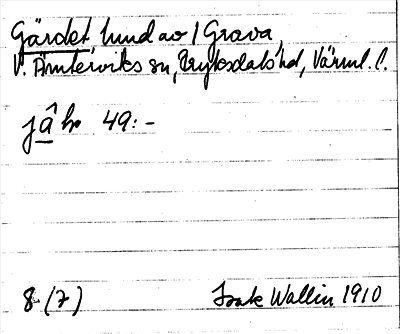 Gärdet hmd av 1 Grava,
V. Ämterviks sn, Fryksdals hd, Värml. l.
49:-
8 (7) Isak Wallin 1910